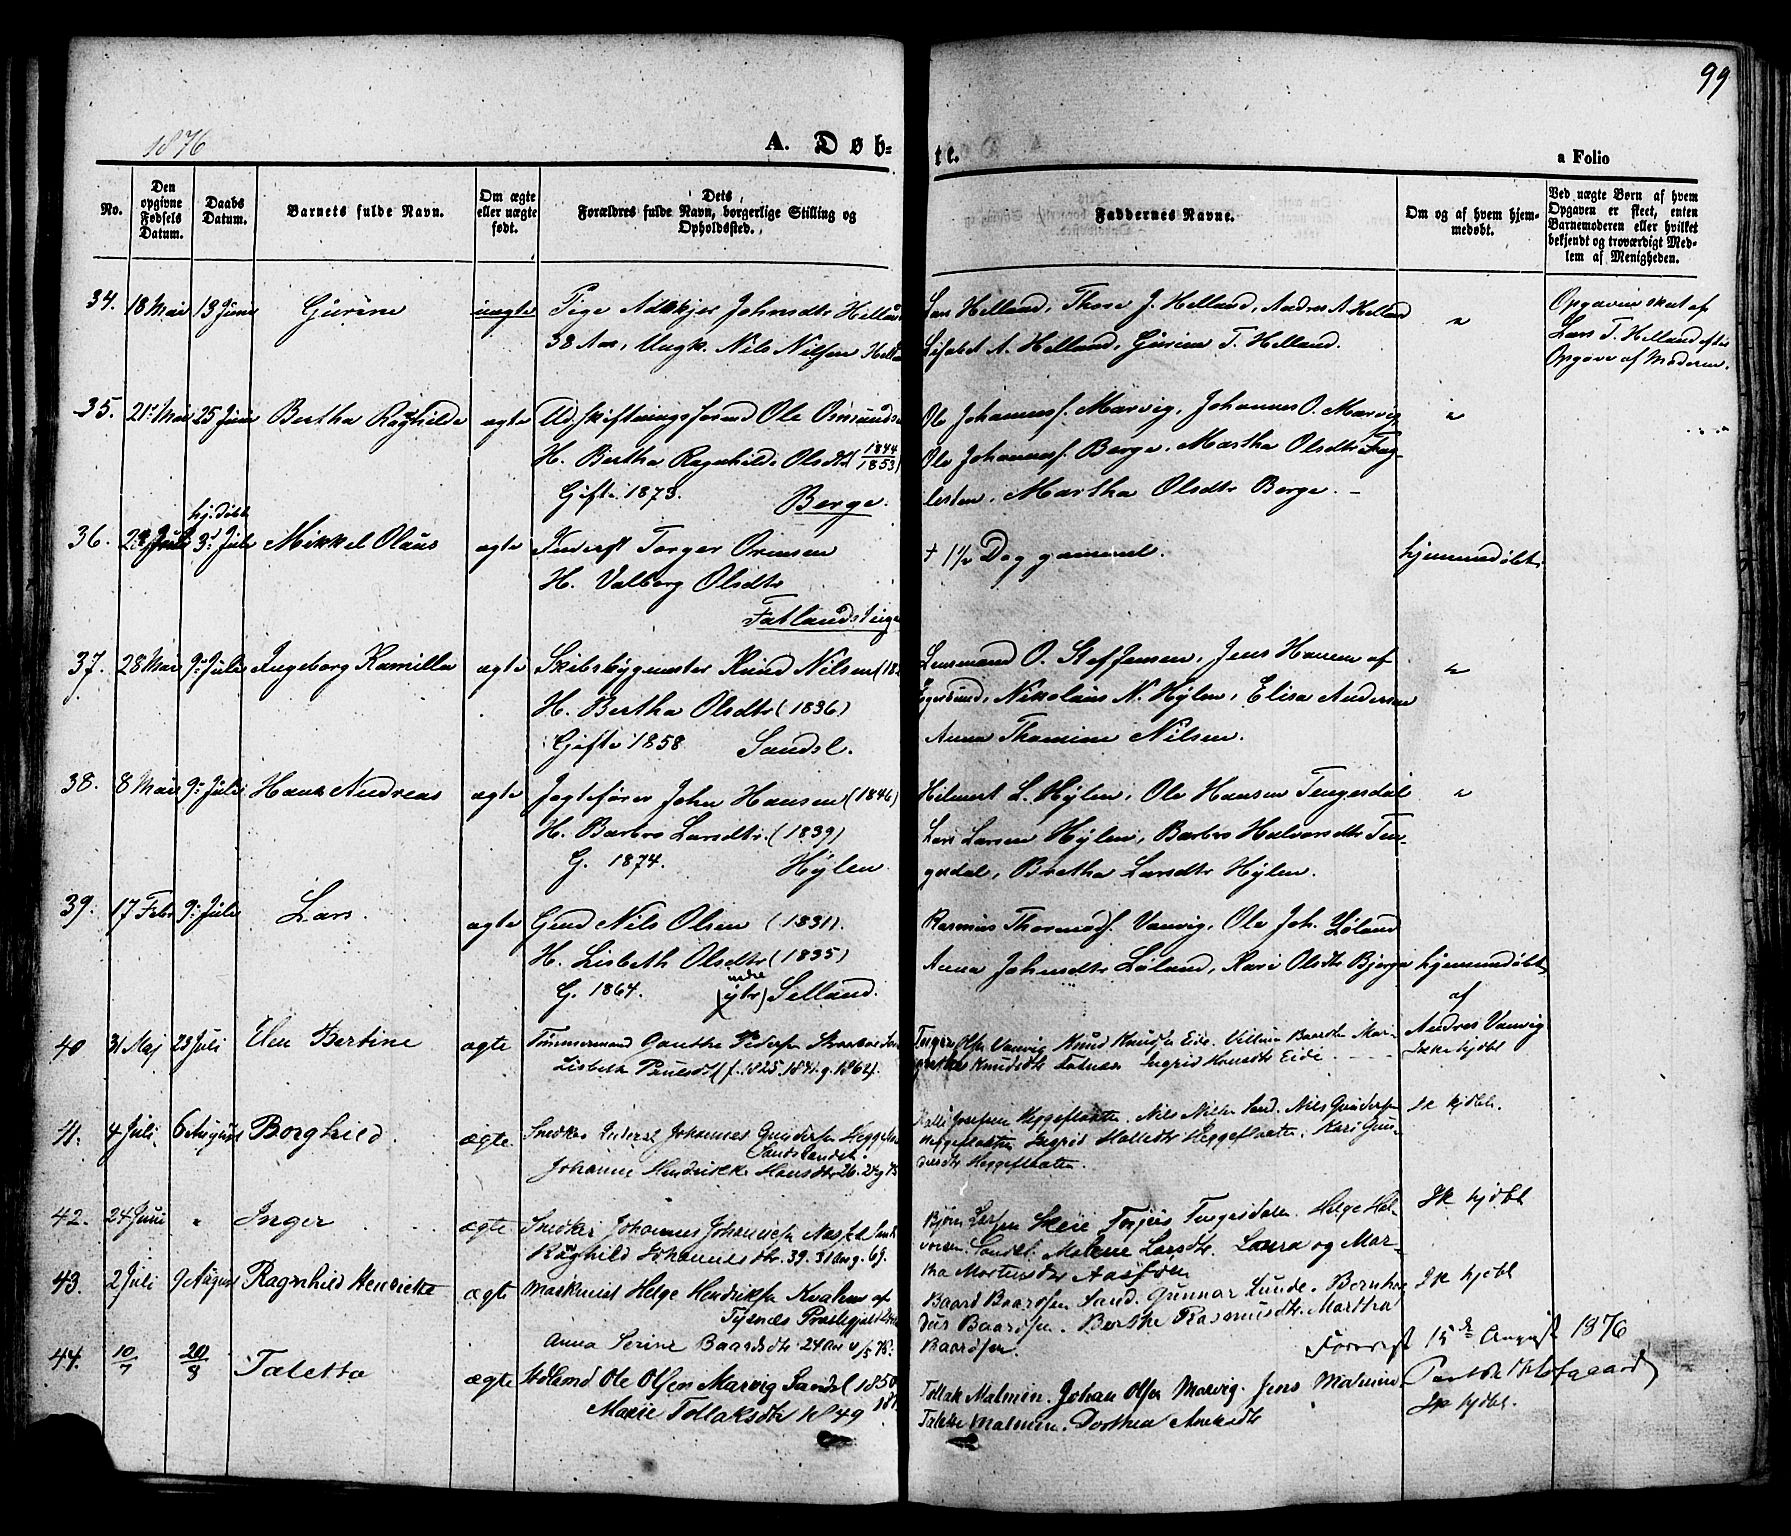 99
1876
A. Døb-
te.
a Folio
No.
Den opgivne Fødsels Datum.
Daabs Datum.
Barnets fulde Navn.
Om ægte eller uægte født.
Dets Forældres fulde Navn, borgerlige Stilling og Opholdssted.
Faddernes Navne.
Om og af hvem hjemmedøbt.
Ved uægte Børn af hvem Opgaven er skeet, enten Barnemoderen eller hvilket bekjendt og troværdigt Medlem af Menigheden.
34. 18 Mai 13 Juni Gurine uægte Pige Johnsdtr Helland
38 Aar, Ungk. Nils Nilsen
Lars Helland, Thore J. Helland, Andres A. Helland
Lisabet A. Helland, Gurine T. Helland.
Opgaven skeet af
Lars T. Helland efter
Opgave af Moderen.
35. 21 Mai 25 Juni Bertha Raghilde ægte Udskiftningsformd Ole Osmundsen
H. Bertha Ragnhilde Olsdtr (1844/1853)
Gifte 1873. Berge.
Ole Johannesf. Marvig, Johannes O. Marvig
Ole Johannesf. Berge, Martha Olsdtr
Martha Olsdtr Berge.
36. hj.døbt
3. Juli Mikkel Olaus ægte Torger
H. Valborg Olsdtr
† 1½ Dag gammel.
hjemmedøbt
37. 28 Mai 9. Juli Ingeborg Kamilla ægte Skibsbygmester Knud Nilsen
H. Bertha Olsdtr (1836)
Gifte 1858 Sandsl.
Lensmand O. Steffensen, Jens Hansen af
Egersund, Nikolaus N. Hylen, Elisa Andersen
Anna Thomine Nilsen.
38. 8 Mai 9. Juli Hans Andreas ægte Jagtefører John Hansen (1846)
H. Barbro Larsdtr. (1839)
G. 1874. Hylen
Hilmert L. Hylen, Ole Hansen Tengesdal
Lars Larsen Hylen, Barbro Halvorsdtr Ten-
gesdal, Bertha Larsdtr Hylen.
39. 17 Febr 9. Juli Lars. ægte Gmd Nils Olsen (1831)
H. Lisbeth Olsdtr (1835)
G. 1864. (ytre) indre Selland.
Rasmus Thormodsf. Vanvig, Ole Joh. Løland
Anna Johnsdtr Løland, Kari Olsdtr Bjerga
hjemmedøbt
af
Andres Vanvig
40 31 Maj 23 Juli Elen Bertine ægte Tømmermand
Lisbeth Paulsdtr f. 1825. 1841. g. 1864.
Torger Olsen Vanvig, Knud Knudsen Eide, Villum Baardsen Mar-
grethe Knudsdtr Ingrid Eide
Ikke hjdbt
41. 4 Juli 6 August Borghild. ægte Snedker Johannes Gundersen
Sandslandet.
Johanne Hendrikke Hansdtr
Josefsen Heggeflaaten. Nils Nielsen Sand. Nils Gundersen
Heggeflaaten Ingrid Heggeflaaten. Kari Gun-
dersdtr Heggeflaaten.
Ik hjdbt.
42. 24 Juni " Inger ægte Snedker Johannes Johannesen
Raghild Johannesdtr. 39. 31 Aar g. 69.
Bjørn Larsen Torjus Tengesdalen. Helge Hal-
vorsen Sandsl. Malene Larsdtr. Laura og Mar-
tha Mortensdtr
Ik hjdbt
43. 2 Juli 9 August Ragnhild Henriette ægte Maskinist Helge Hendriksen Kvalnes af
Tysnæs Præstegjeld
Anna Serine Baardsdtr 24 Aar
Baard Baardsen Sand. Gunnar Lunde. Bernhar-
dus Baardsen. Berthe Rasmusdtr. Martha
Baardsen.
Ik hjdbt
Forevist 15de August 1876
44. 10/7 20/8 Taletta ægte Ole Olsen Marvig Sandsl 1850
Marie Tollaksdtr 1849
Tollak Malmin. Johan Olsen Marvig. Jens Malmin
Talette Malmin. Dorthea
Ik hjdbt.